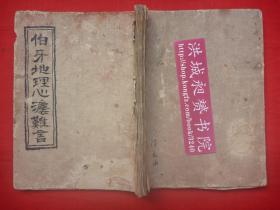 伯牙地理心灋難言
洪城昶赟书院
http://shop.kongfz.com/book/3240